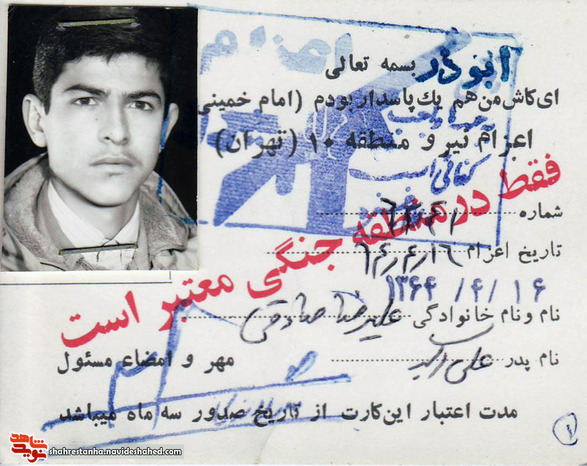 ابوذر
بسمه تعالی
ای کاش من هم یك پاسدار بودم (امام خمینی
اعزام نیرو منطقه ۱۰ (تهران)
اعزام
فقط در منطقه جنگی معتبر است
شماره
تاریخ اعزام ۱۶/۴/۶۴
۱۳۶۴/۴/۱۶
نام و نام خانوادگی علیرضا صادقی
نام پدر علی اکبر
مهر و امضاء مسئول
مدت اعتبار این کارت از تاریخ صدور سه ماه میباشد
۱
shahrestanha.navideshahed.com